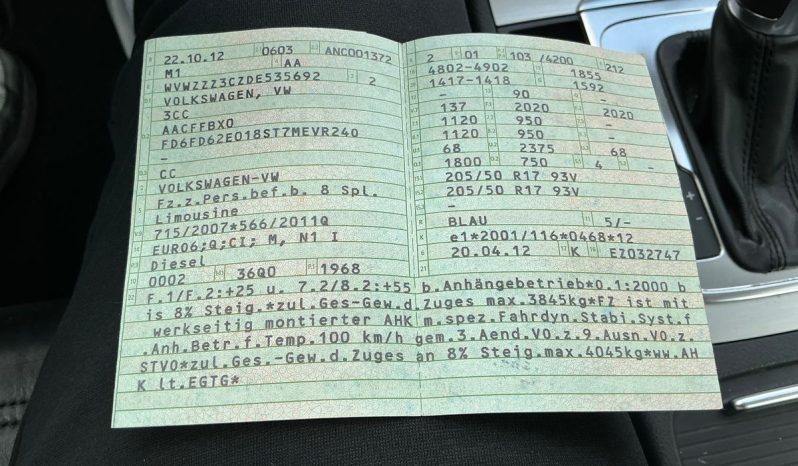 22.10.12 0603 ANC001372
M1 AA
WVWZZZ3CZDE535692 2
VOLKSWAGEN, VW
3CC
AACFFBX0
FD6FD62E018ST7MEVR240
–
CC
VOLKSWAGEN-VW
Fz.z.Pers.bef.b. 8 Spl.
Limousine
715/2007*566/2011Q
EURO6;Q;CI; M, N1 I
Diesel
0002 36Q0 1968
2 01 103 /4200 212
4802-4902 1855
1417-1418 1592
– 90 –
137 2020 2020
1120 950 –
1120 950 –
68 2375 68
1800 750 4 –
205/50 R17 93V
205/50 R17 93V
–
BLAU 5/–
e1*2001/116*0468*12
20.04.12 K EZ032747
F.1/F.2:+25 u. 7.2/8.2:+55 b.Anhängebetrieb*0.1:2000 b
is 8% Steig.*zul.Ges-Gew.d.Zuges max.3845kg*FZ ist mit
werkseitig montierter AHK m.spez.Fahrdyn.Stabi.Syst.f
.Anh.Betr.f.Temp.100 km/h gem.3.Aend.VO.z.9.Ausn.VO.z.
STVO*zul.Ges.-Gew.d.Zuges an 8% Steig.max.4045kg*ww.AH
K lt.EGTG*